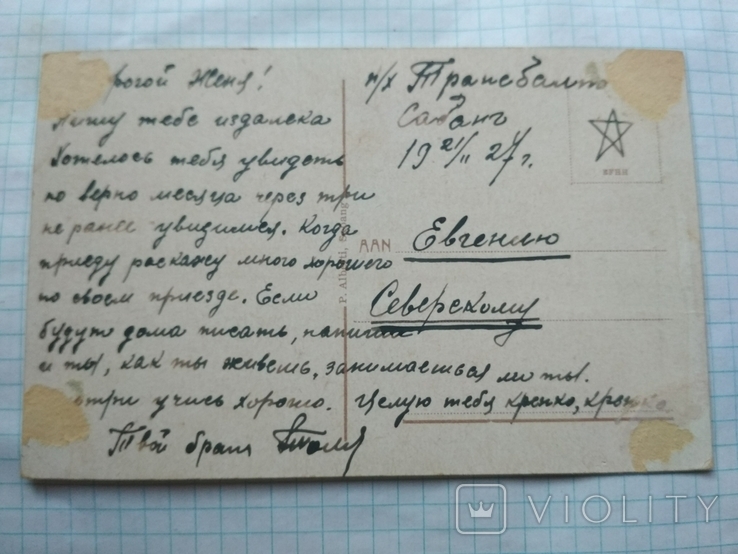 рогой Женя!
Пишу тебе издалека
Хотелось тебя увидеть
но верно месяца через три
не ранее увидимся. Когда
приеду раскажу много хорошего
по своем приезде. Если
будут дома писать, напиши
и ты, как ты живешь, занимаешься ли ты.
отри учись хорошо. Целую тебя крепко, крепко.
Твой брат Толя
п/х Трансбалт
Сабанг
19 21/II 27 г.
AAN Евгению
Северскому
P. Alb
VIOLITY